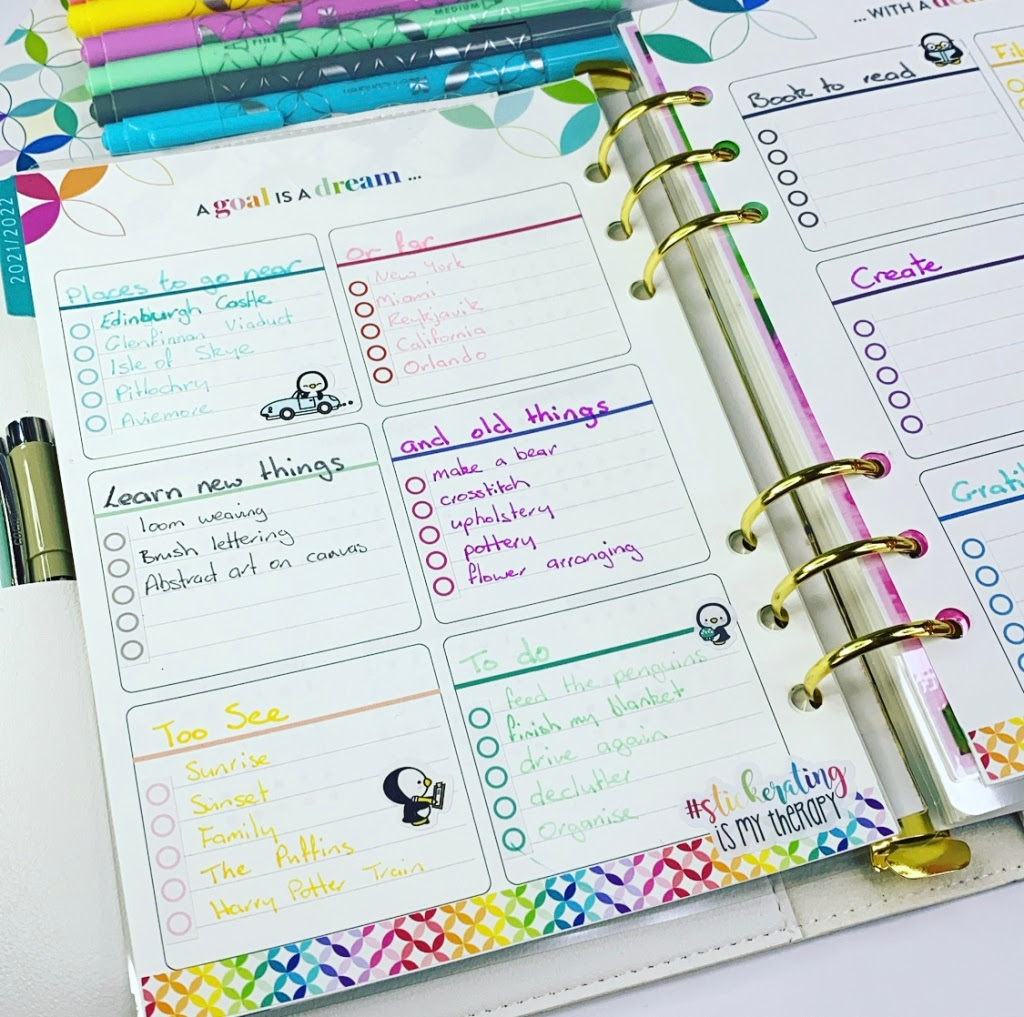 FINE
MEDIUM
2021/2022
A goal IS A dream ...
Places to go near
Edinburgh Castle
Glenfinnan Viaduct
Isle of Skye
Pitlochry
Aviemore
or far
New York
Miami
Reykjavik
California
Orlando
Learn new things
loom weaving
Brush lettering
Abstract art on canvas
and old things
make a bear
crosstitch
upholstery
pottery
flower arranging
Too See
Sunrise
Sunset
Family
The Puffins
Harry Potter Train
To do
feed the penguins
finish my blanket
drive again
declutter
organise
#stickerating
IS MY THERAPY
... WITH A
Book to read
Create